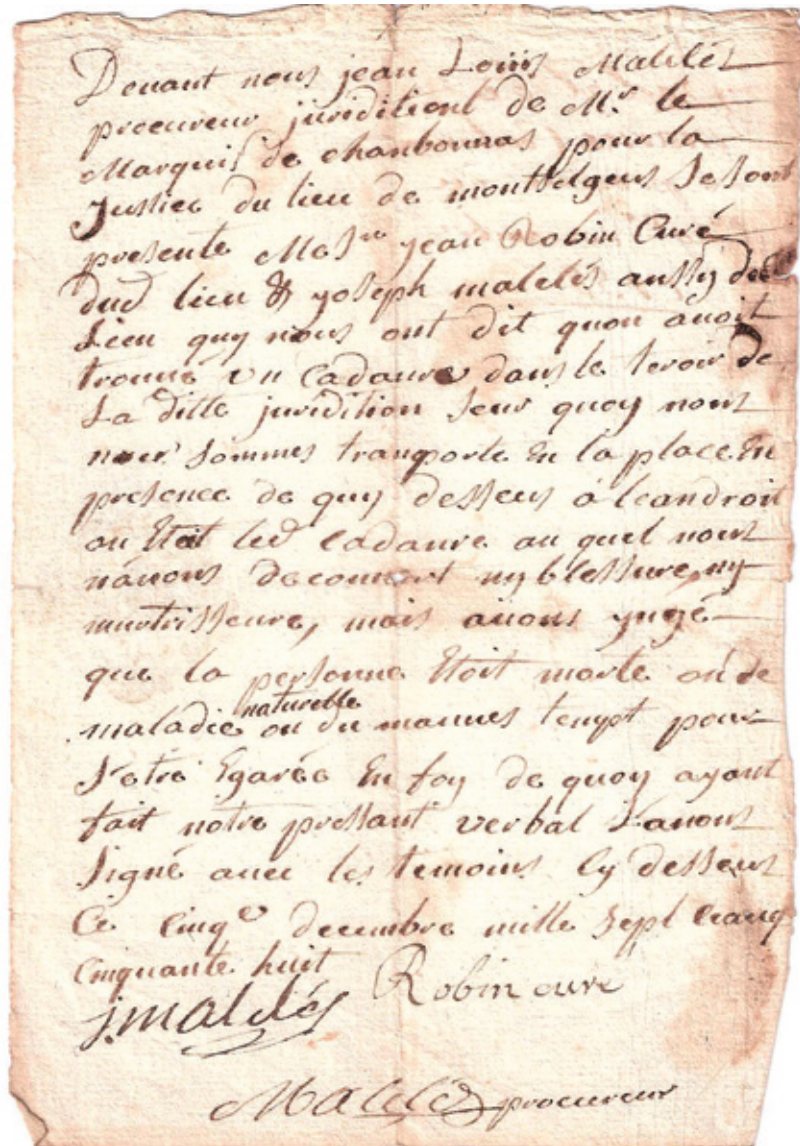 Devant nous jean Louis Malelés
procureur juriditionl de Mr le
Marquis de chanbonnas pour la
Justice du lieu de montselgues se sont
presente Messre jean Robin Curé
dud lieu & joseph malelés aussy dud
Lieu quy nous ont dit quon avoit
trouvé un Cadavre dans le teroir de
La ditte juridition seur quoy nous
nour sommes transporte En la place En
presence de quy desseus à leandroit
ou Etoit led Cadavre au quel nous
navons decouvert ny blesseure, ny
murtrisseure, mais avons yugé
que la personne Etoit morte ou de
maladie naturelle ou du mauves tempt pour
s'etre Egarée En foy de quoy ayant
fait notre pressant verbal Lavons
signé avec les temoins Cy desseus
Ce Cinqe decembre mille sept Ceanq
Cinquante huit
jmalelés Robin cure
Malelés procureur